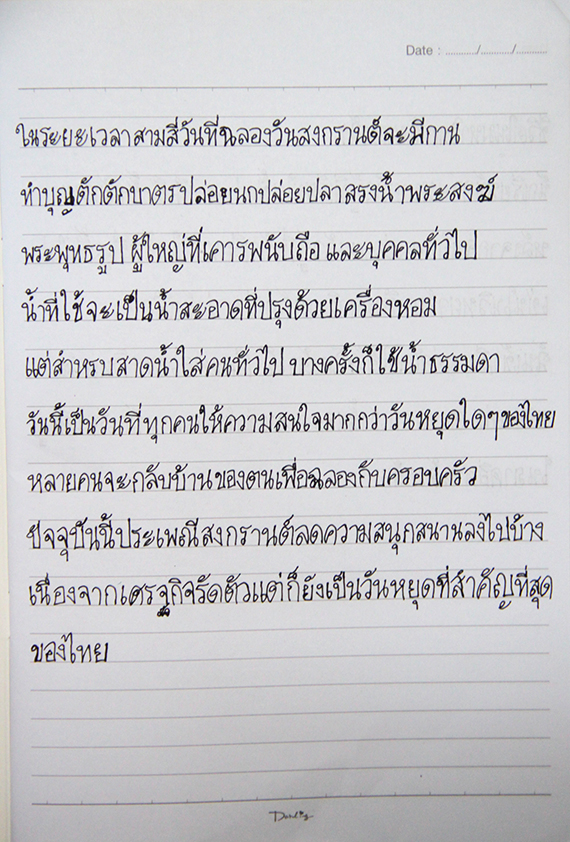 Date : ........../........../..........
ในระยะเวลาสามสี่วันที่ฉลองวันสงกรานต์จะมีการ
ทำบุญตักตักบาตรปล่อยนกปล่อยปลาสรงน้ำพระสงฆ์
พระพุทธรูป ผู้ใหญ่ที่เคารพนับถือ และบุคคลทั่วไป
น้ำที่ใช้จะเป็นน้ำสะอาดที่ปรุงด้วยเครื่องหอม
แต่สำหรบสาดน้ำใส่คนทั่วไป บางครั้งก็ใช้น้ำธรรมดา
วันนี้เป็นวันที่ทุกคนให้ความสนใจมากกว่าวันหยุดใดๆของไทย
หลายคนจะกลับบ้านของตนเพื่อฉลองกับครอบครัว
ปัจจุบันนี้ประเพณีสงกรานต์ลดความสนุกสนานลงไปบ้าง
เนื่องจากเศรฐกิจรัดตัวแต่ก็ยังเป็นวันหยุดที่สำคัญที่สุด
ของไทย